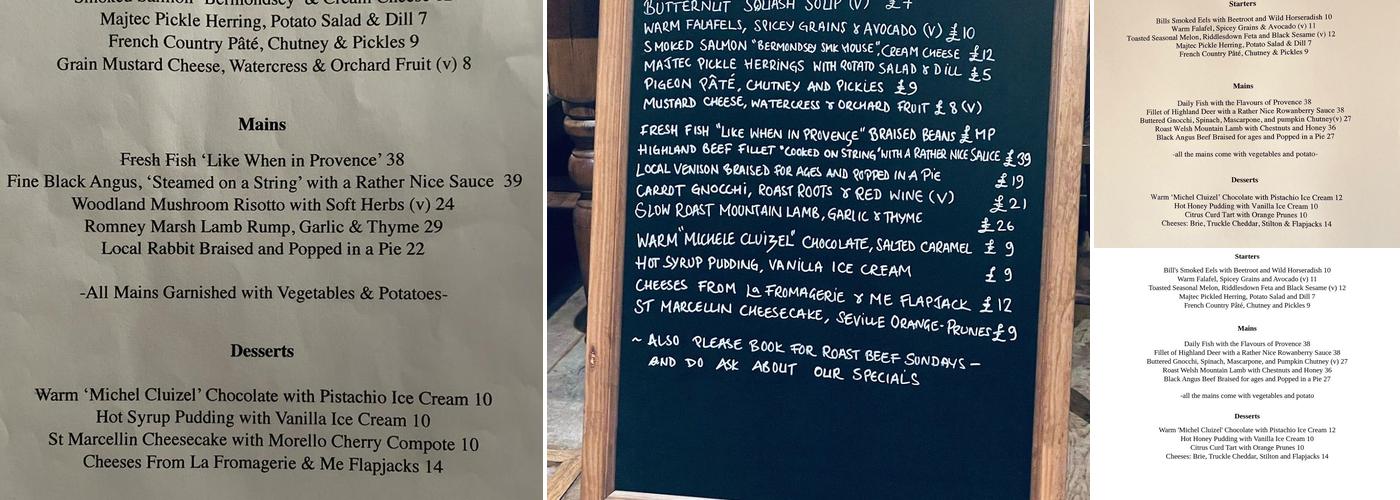 Smoked Salmon 'Bermondsey' & Cream Cheese 12
Majtec Pickle Herring, Potato Salad & Dill 7
French Country Pâté, Chutney & Pickles 9
Grain Mustard Cheese, Watercress & Orchard Fruit (v) 8
Mains
Fresh Fish 'Like When in Provence' 38
Fine Black Angus, 'Steamed on a String' with a Rather Nice Sauce 39
Woodland Mushroom Risotto with Soft Herbs (v) 24
Romney Marsh Lamb Rump, Garlic & Thyme 29
Local Rabbit Braised and Popped in a Pie 22
-All Mains Garnished with Vegetables & Potatoes-
Desserts
Warm 'Michel Cluizel' Chocolate with Pistachio Ice Cream 10
Hot Syrup Pudding with Vanilla Ice Cream 10
St Marcellin Cheesecake with Morello Cherry Compote 10
Cheeses From La Fromagerie & Me Flapjacks 14
BUTTERNUT SQUASH SOUP (V) £7
WARM FALAFELS, SPICEY GRAINS & AVOCADO (V) £10
SMOKED SALMON "BERMONDSEY SMK HOUSE", CREAM CHEESE £12
MAJTEC PICKLE HERRINGS WITH POTATO SALAD & DILL £5
PIGEON PÂTÉ, CHUTNEY AND PICKLES £9
MUSTARD CHEESE, WATERCRESS & ORCHARD FRUIT £8 (V)
FRESH FISH "LIKE WHEN IN PROVENCE" BRAISED BEANS £MP
HIGHLAND BEEF FILLET "COOKED ON STRING" WITH A RATHER NICE SAUCE £39
LOCAL VENISON BRAISED FOR AGES AND POPPED IN A Pie £19
CARROT GNOCCHI, ROAST ROOTS & RED WINE (V) £21
SLOW ROAST MOUNTAIN LAMB, GARLIC & THYME £26
WARM "MICHELE CLUIZEL" CHOCOLATE, SALTED CARAMEL £9
HOT SYRUP PUDDING, VANILLA ICE CREAM £9
CHEESES FROM LA FROMAGERIE & ME FLAPJACK £12
ST MARCELLIN CHEESECAKE, SEVILLE ORANGE-PRUNES £9
~ ALSO PLEASE BOOK FOR ROAST BEEF SUNDAYS –
AND DO ASK ABOUT OUR SPECIALS
Starters
Bills Smoked Eels with Beetroot and Wild Horseradish 10
Warm Falafel, Spicey Grains & Avocado (v) 11
Toasted Seasonal Melon, Riddlesdown Feta and Black Sesame (v) 12
Majtec Pickle Herring, Potato Salad & Dill 7
French Country Pâté, Chutney & Pickles 9
Mains
Daily Fish with the Flavours of Provence 38
Fillet of Highland Deer with a Rather Nice Rowanberry Sauce 38
Buttered Gnocchi, Spinach, Mascarpone, and pumpkin Chutney(v) 27
Roast Welsh Mountain Lamb with Chestnuts and Honey 36
Black Angus Beef Braised for ages and Popped in a Pie 27
-all the mains come with vegetables and potato-
Desserts
Warm 'Michel Cluizel' Chocolate with Pistachio Ice Cream 12
Hot Honey Pudding with Vanilla Ice Cream 10
Citrus Curd Tart with Orange Prunes 10
Cheeses: Brie, Truckle Cheddar, Stilton & Flapjacks 14
Starters
Bill's Smoked Eels with Beetroot and Wild Horseradish 10
Warm Falafel, Spicey Grains and Avocado (v) 11
Toasted Seasonal Melon, Riddlesdown Feta and Black Sesame (v) 12
Majtec Pickled Herring, Potato Salad and Dill 7
French Country Pâté, Chutney and Pickles 9
Mains
Daily Fish with the Flavours of Provence 38
Fillet of Highland Deer with a Rather Nice Rowanberry Sauce 38
Buttered Gnocchi, Spinach, Mascarpone, and Pumpkin Chutney (v) 27
Roast Welsh Mountain Lamb with Chestnuts and Honey 36
Black Angus Beef Braised for ages and Popped in a Pie 27
-all the mains come with vegetables and potato
Desserts
Warm 'Michel Cluizel' Chocolate with Pistachio Ice Cream 12
Hot Honey Pudding with Vanilla Ice Cream 10
Citrus Curd Tart with Orange Prunes 10
Cheeses: Brie, Truckle Cheddar, Stilton and Flapjacks 14